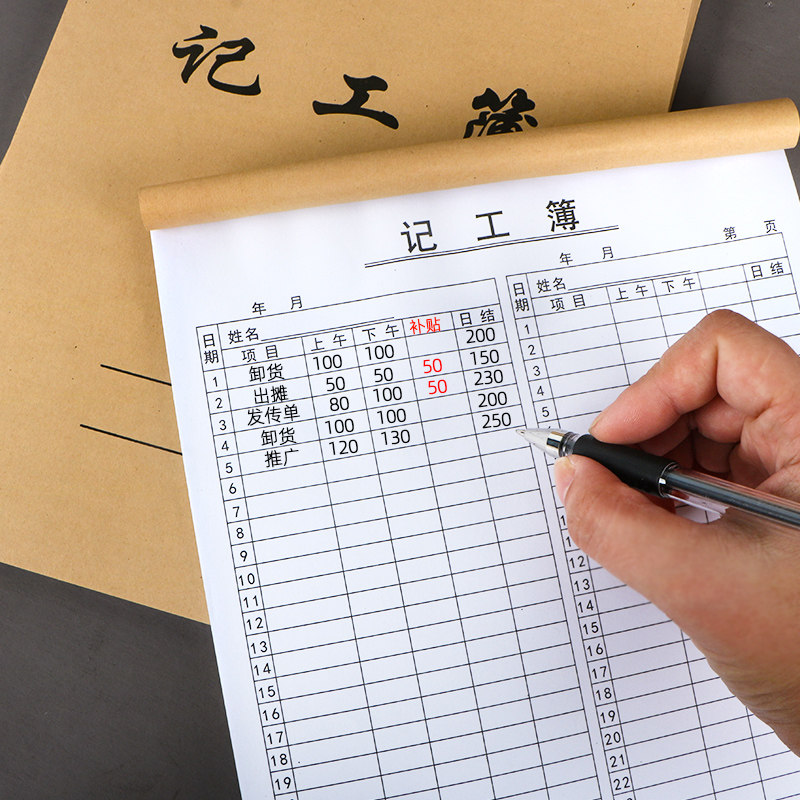 记工簿
记工簿
年 月
日期 姓名
项目 上午 下午 补贴 日结
1 卸货 100 100 200
2 出摊 50 50 50 150
3 发传单 80 100 50 230
4 卸货 100 100 200
5 推广 120 130 250
6
7
8
9
10
11
12
13
14
15
16
17
18
19
第 页
年 月
日期 姓名
项目 上午 下午 日结
1
2
3
4
5
12
13
14
15
16
17
18
19
20
21
22